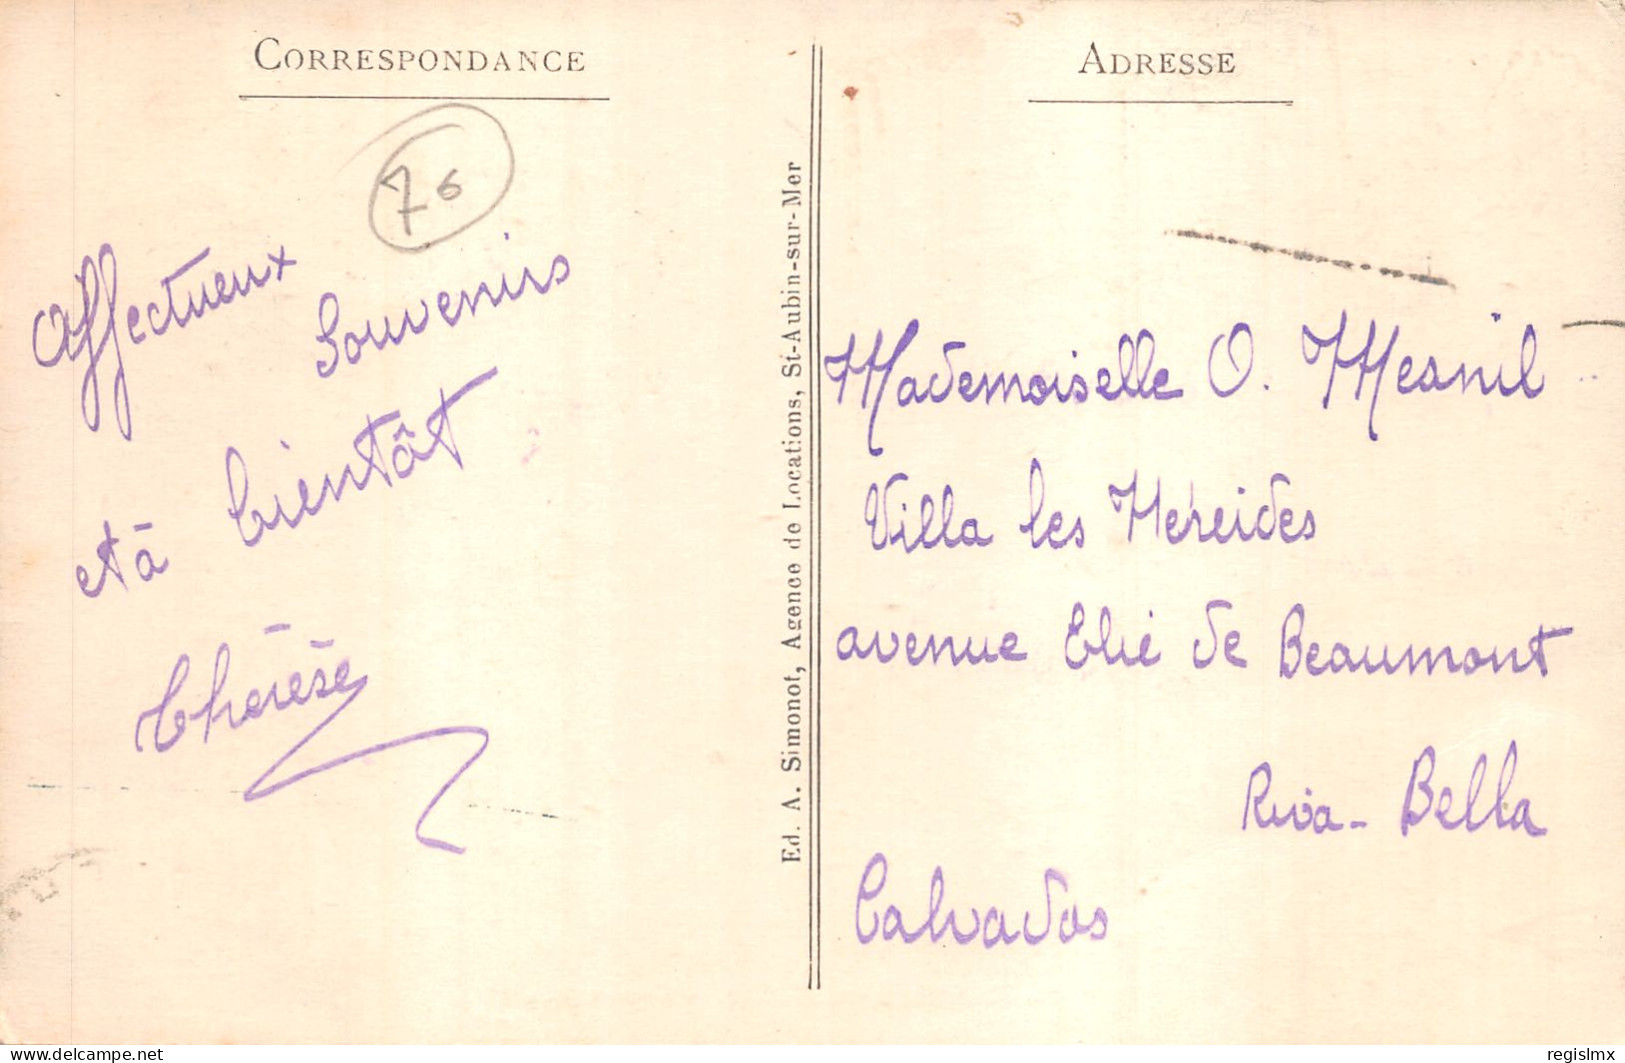 CORRESPONDANCE
76
Affectueux
Souvenirs
et à bientôt
Thérèse
Ed. A. Simonot, Agence de Locations, St-Aubin-sur-Mer
ADRESSE
Mademoiselle O. Mesnil
Villa les Néréides
avenue Elie de Beaumont
Riva-Bella
Calvados
delcampe.net
regislmx